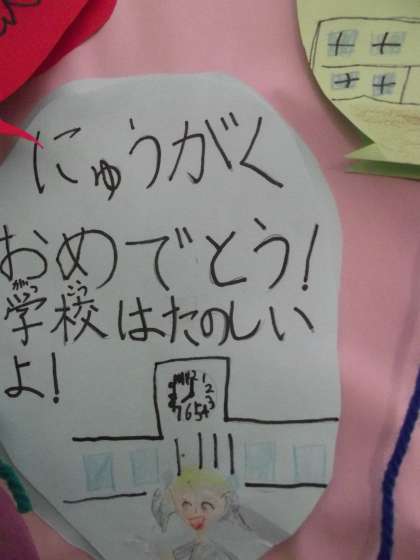 にゅうがく
おめでとう!
がっこう
学校はたのしい
よ!